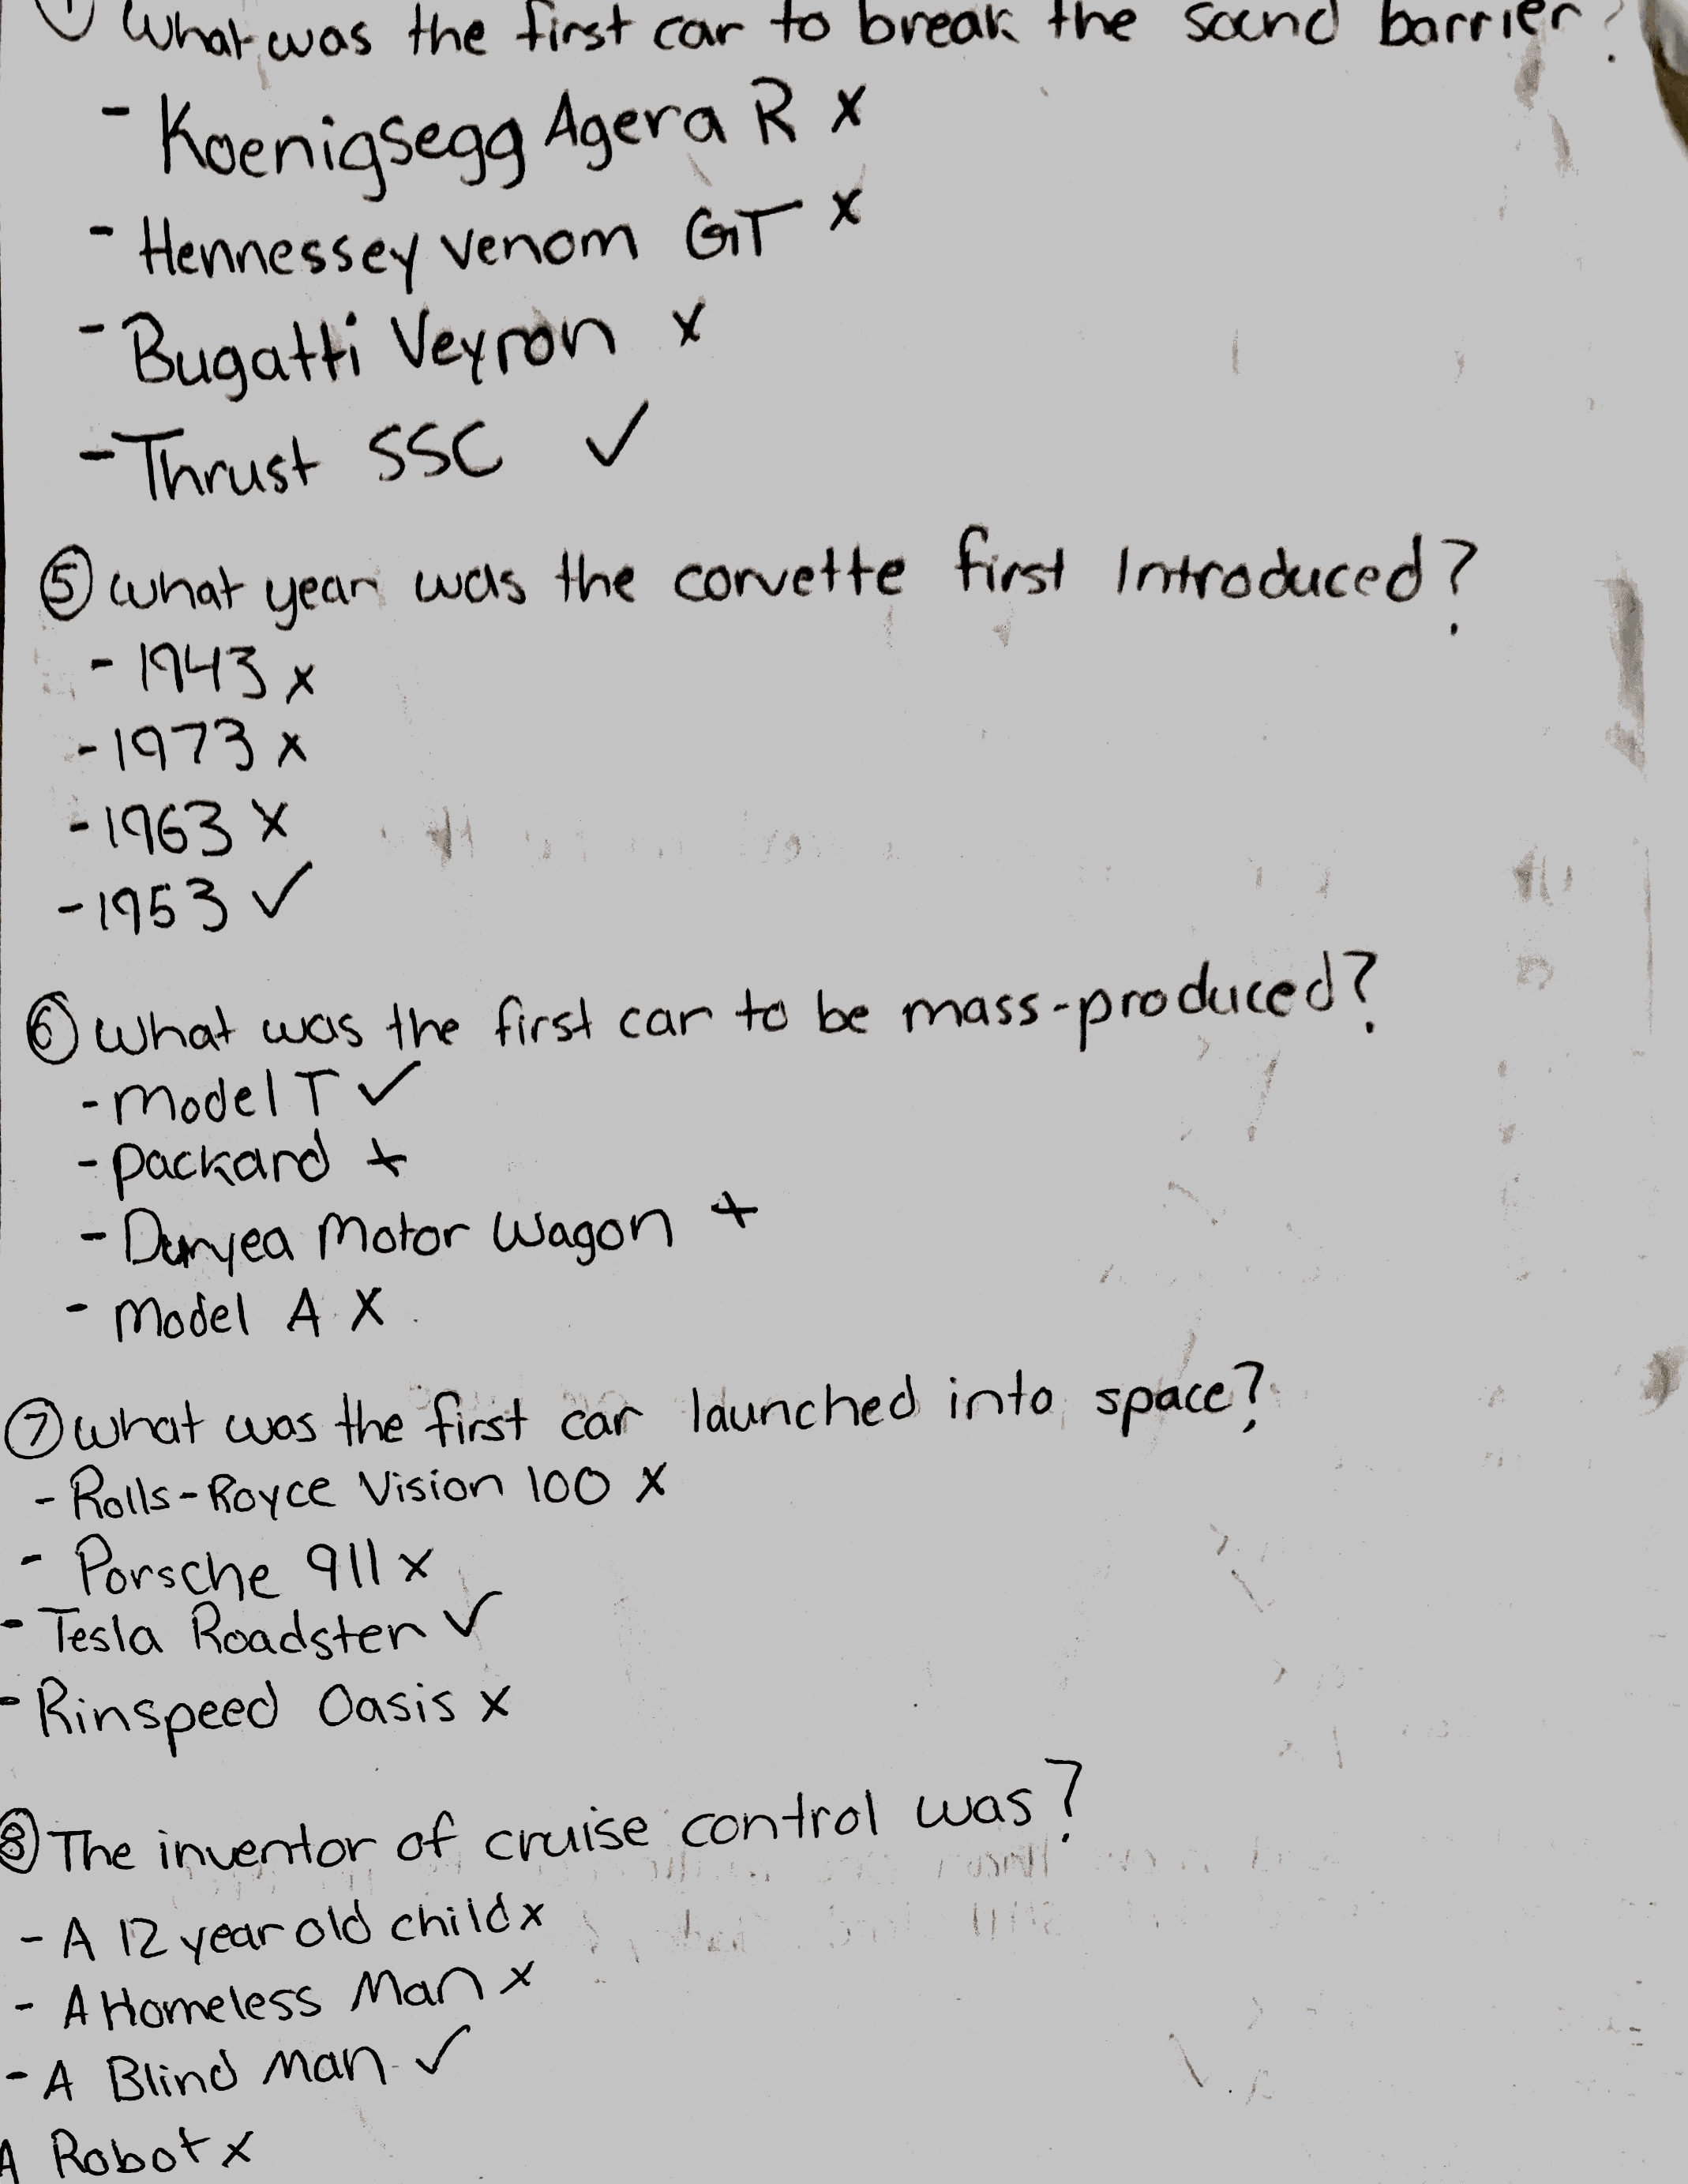 What was the first car to break the sound barrier?
- Koenigsegg Agera R x
- Hennessey venom GT x
- Bugatti Veyron x
- Thrust SSC ✓
⑤ what year was the corvette first Introduced?
- 1943 x
- 1973 x
- 1963 x
- 1953 ✓
⑥ what was the first car to be mass-produced?
- Model T ✓
- Packard +
- Duryea Motor Wagon +
- Model A X
⑦ what was the first car launched into space?
- Rolls-Royce Vision 100 x
- Porsche 911 x
- Tesla Roadster ✓
- Rinspeed Oasis x
⑧ The inventor of cruise control was?
- A 12 year old child x
- A Homeless Man x
- A Blind Man ✓
A Robot x